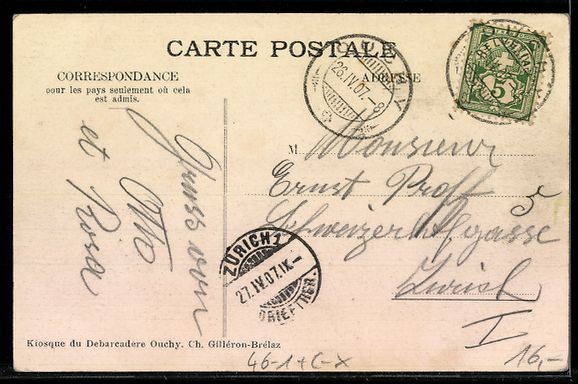 CARTE POSTALE
CORRESPONDANCE
pour les pays seulement où cela
est admis.
ADRESSE
OUCHY
26.IV.07.-8
HELVETIA
5
Gruss von
Otto
et Rosa
M. Monsieur
Ernst Proff
Schweizer gasse 5
Zürich
I
ZÜRICH 1
27.IV.07.IX.-
BRIEFTRGR.
Kiosque du Debarcadère Ouchy. Ch. Gilléron-Brélaz
46-1+C-X
16,-